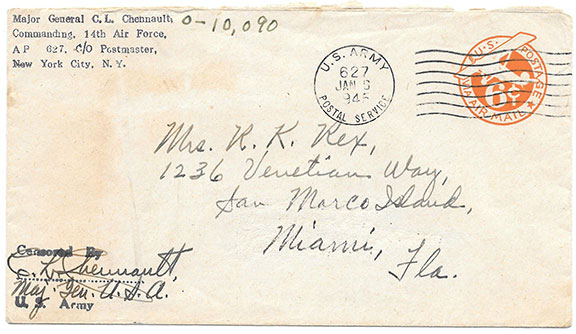 Major General C. L. Chennault, 0-10,090
Commanding, 14th Air Force,
AP 627, c/o Postmaster,
New York City, N. Y.
U.S. ARMY
627
JAN
194
POSTAL SERVICE
U.S. POSTAGE
6¢
VIA AIR MAIL
Mrs. K. K. Rex,
1236 Venetian Way,
San Marco Island,
Miami,
Fla.
Censored By
C. L. Chennault,
Maj. Gen. U.S.A.
U. S. Army